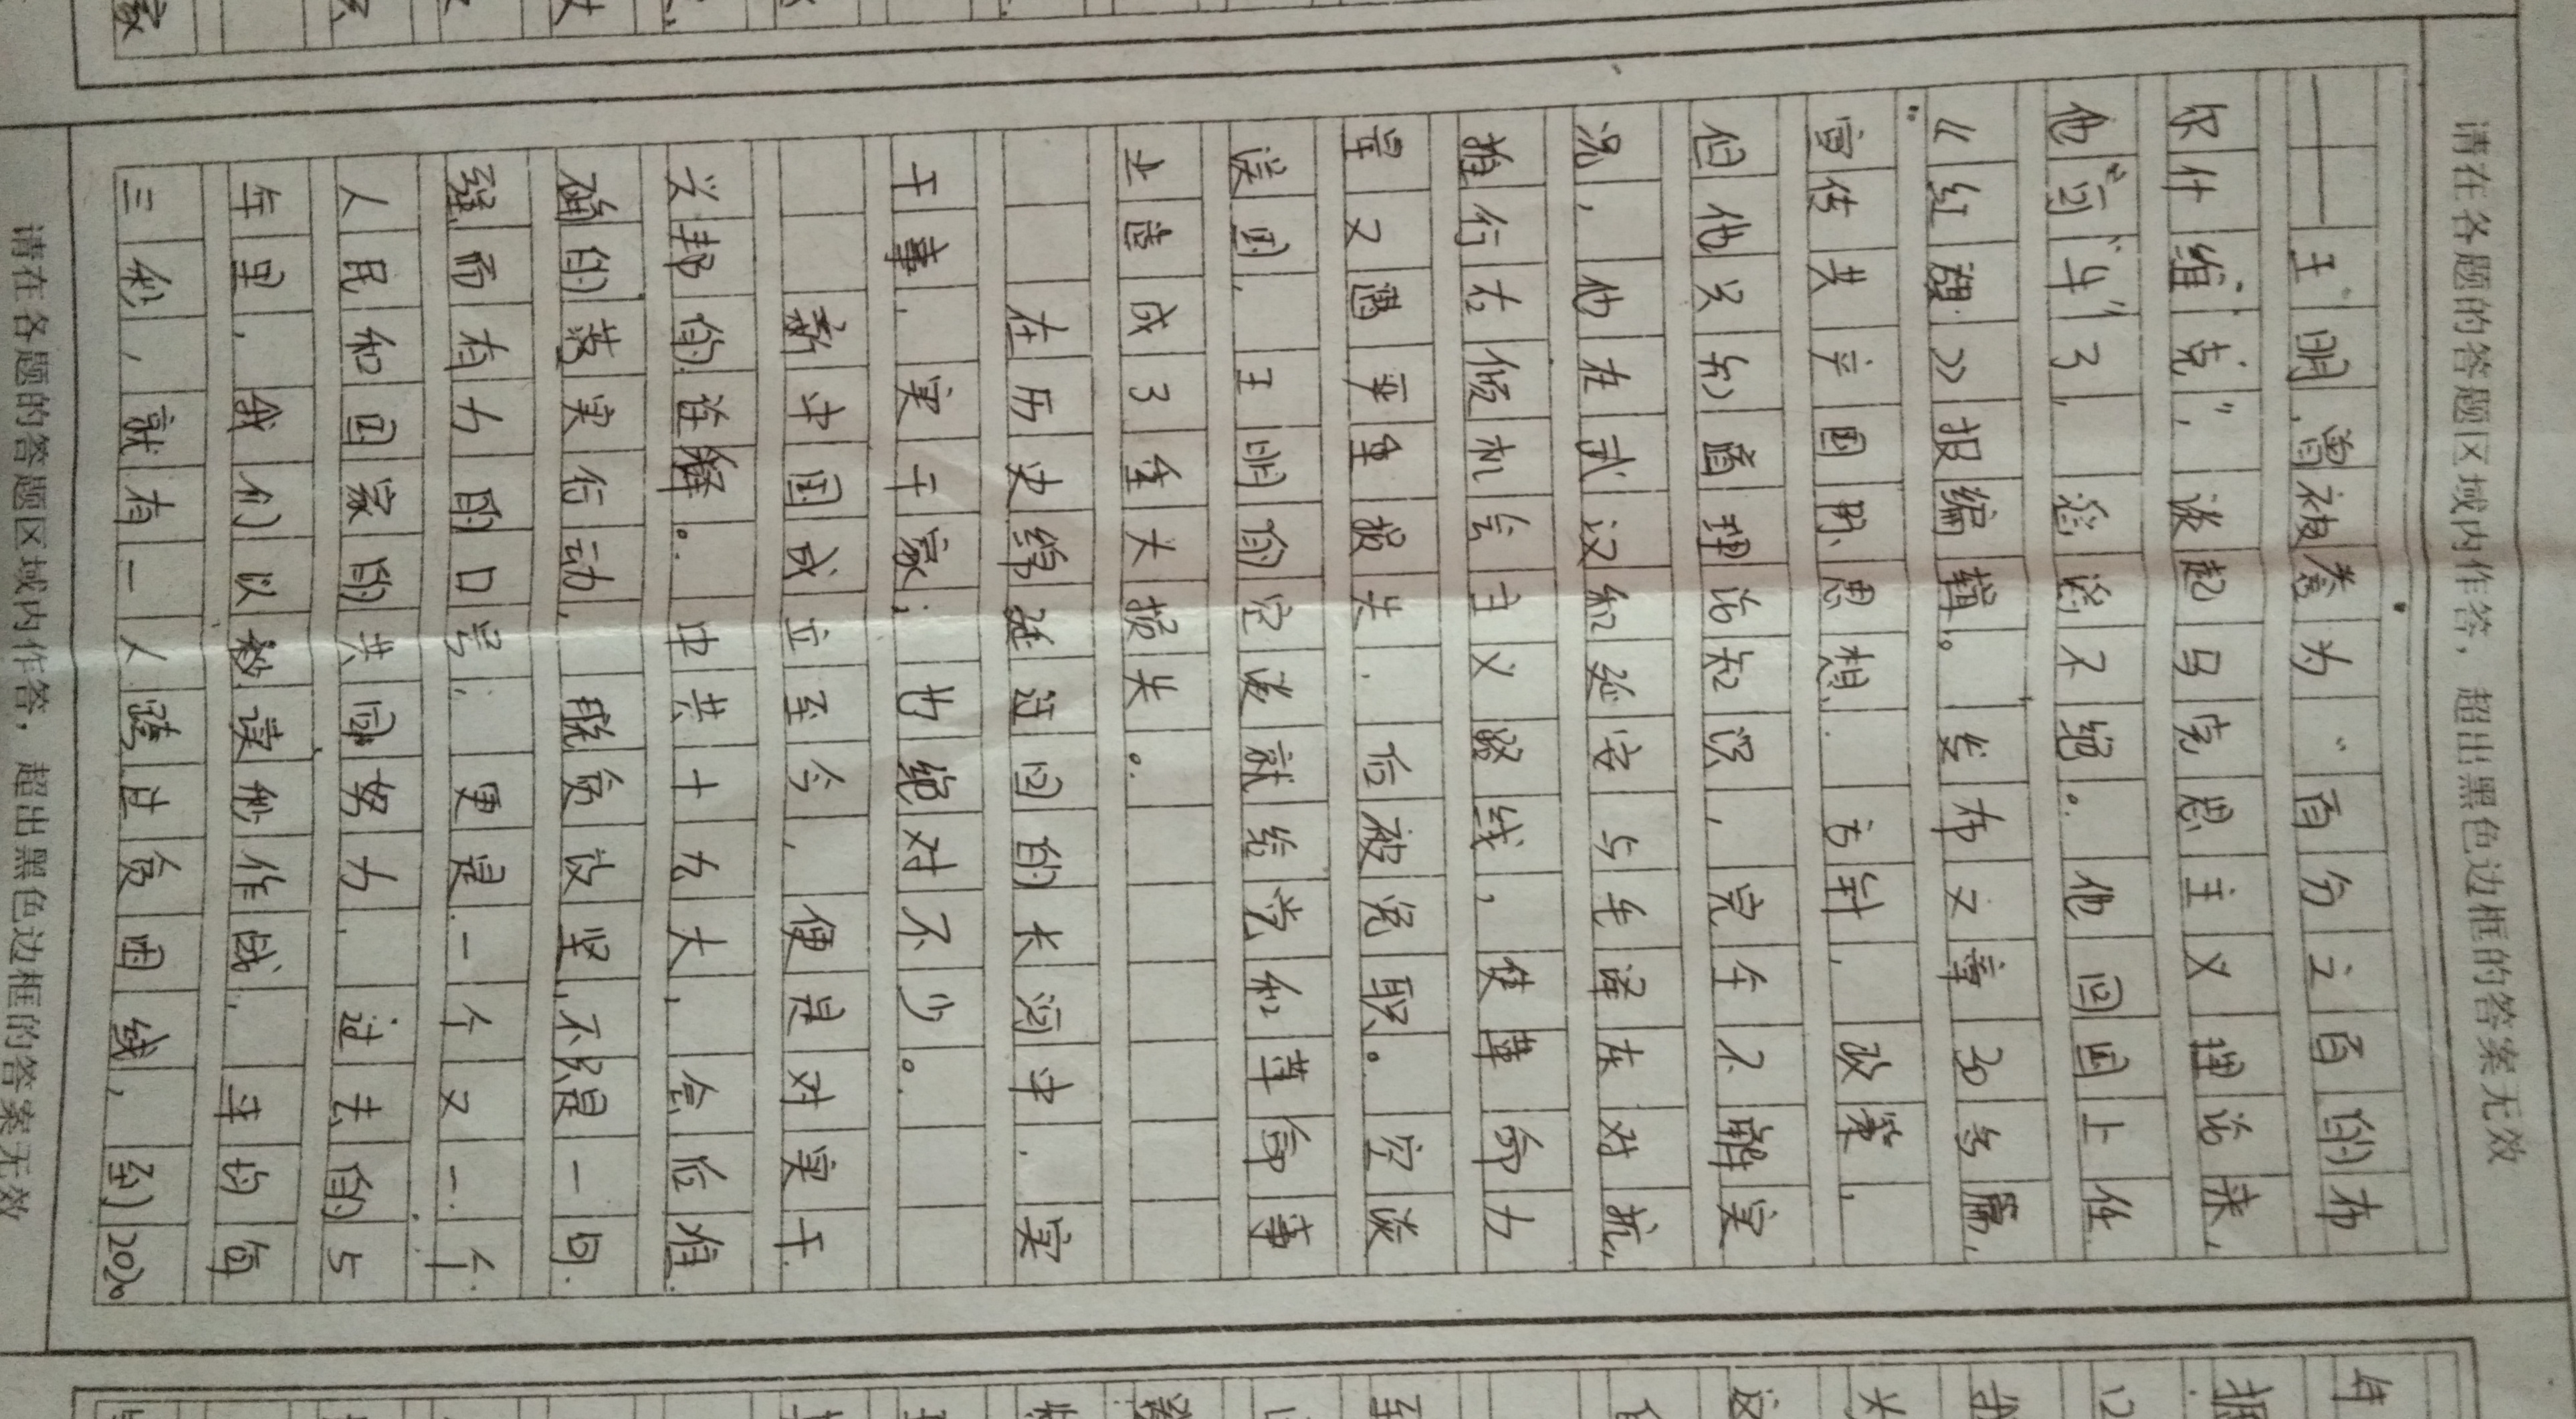 请在各题的答题区域内作答，超出黑色边框的答案无效
——王明,曾被誉为“百分之百的布
尔什维克”,谈起马克思主义理论来,
他“可“牛”了,滔滔不绝。他回国上任
《红旗》报编辑。发布文章30多篇,
宣传共产国际思想.方针,政策,
但他只知道理论知识,完全不解实
况,他在武汉和延安与毛泽东对抗,
推行右倾机会主义路线,使革命力
量又遭严重损失.后被免职。空谈
误国,王明的空谈就给党和革命事
业造成了重大损失。
在历史绵延迂回的长河中.实
干事.实干家;也绝对不少。
新中国成立至今,便是对实干
兴邦的诠释。中共十九大,会后准
确的落实行动,脱贫攻坚,不只是一句
轻而有力的口号;更是一个又一个
人民和国家的共同努力.过去的5
年里,我们以秒读秒作战,平均每
三秒,就有一人跨过贫困线,到2020
请在各题的答题区域内作答，超出黑色边框的答案无效